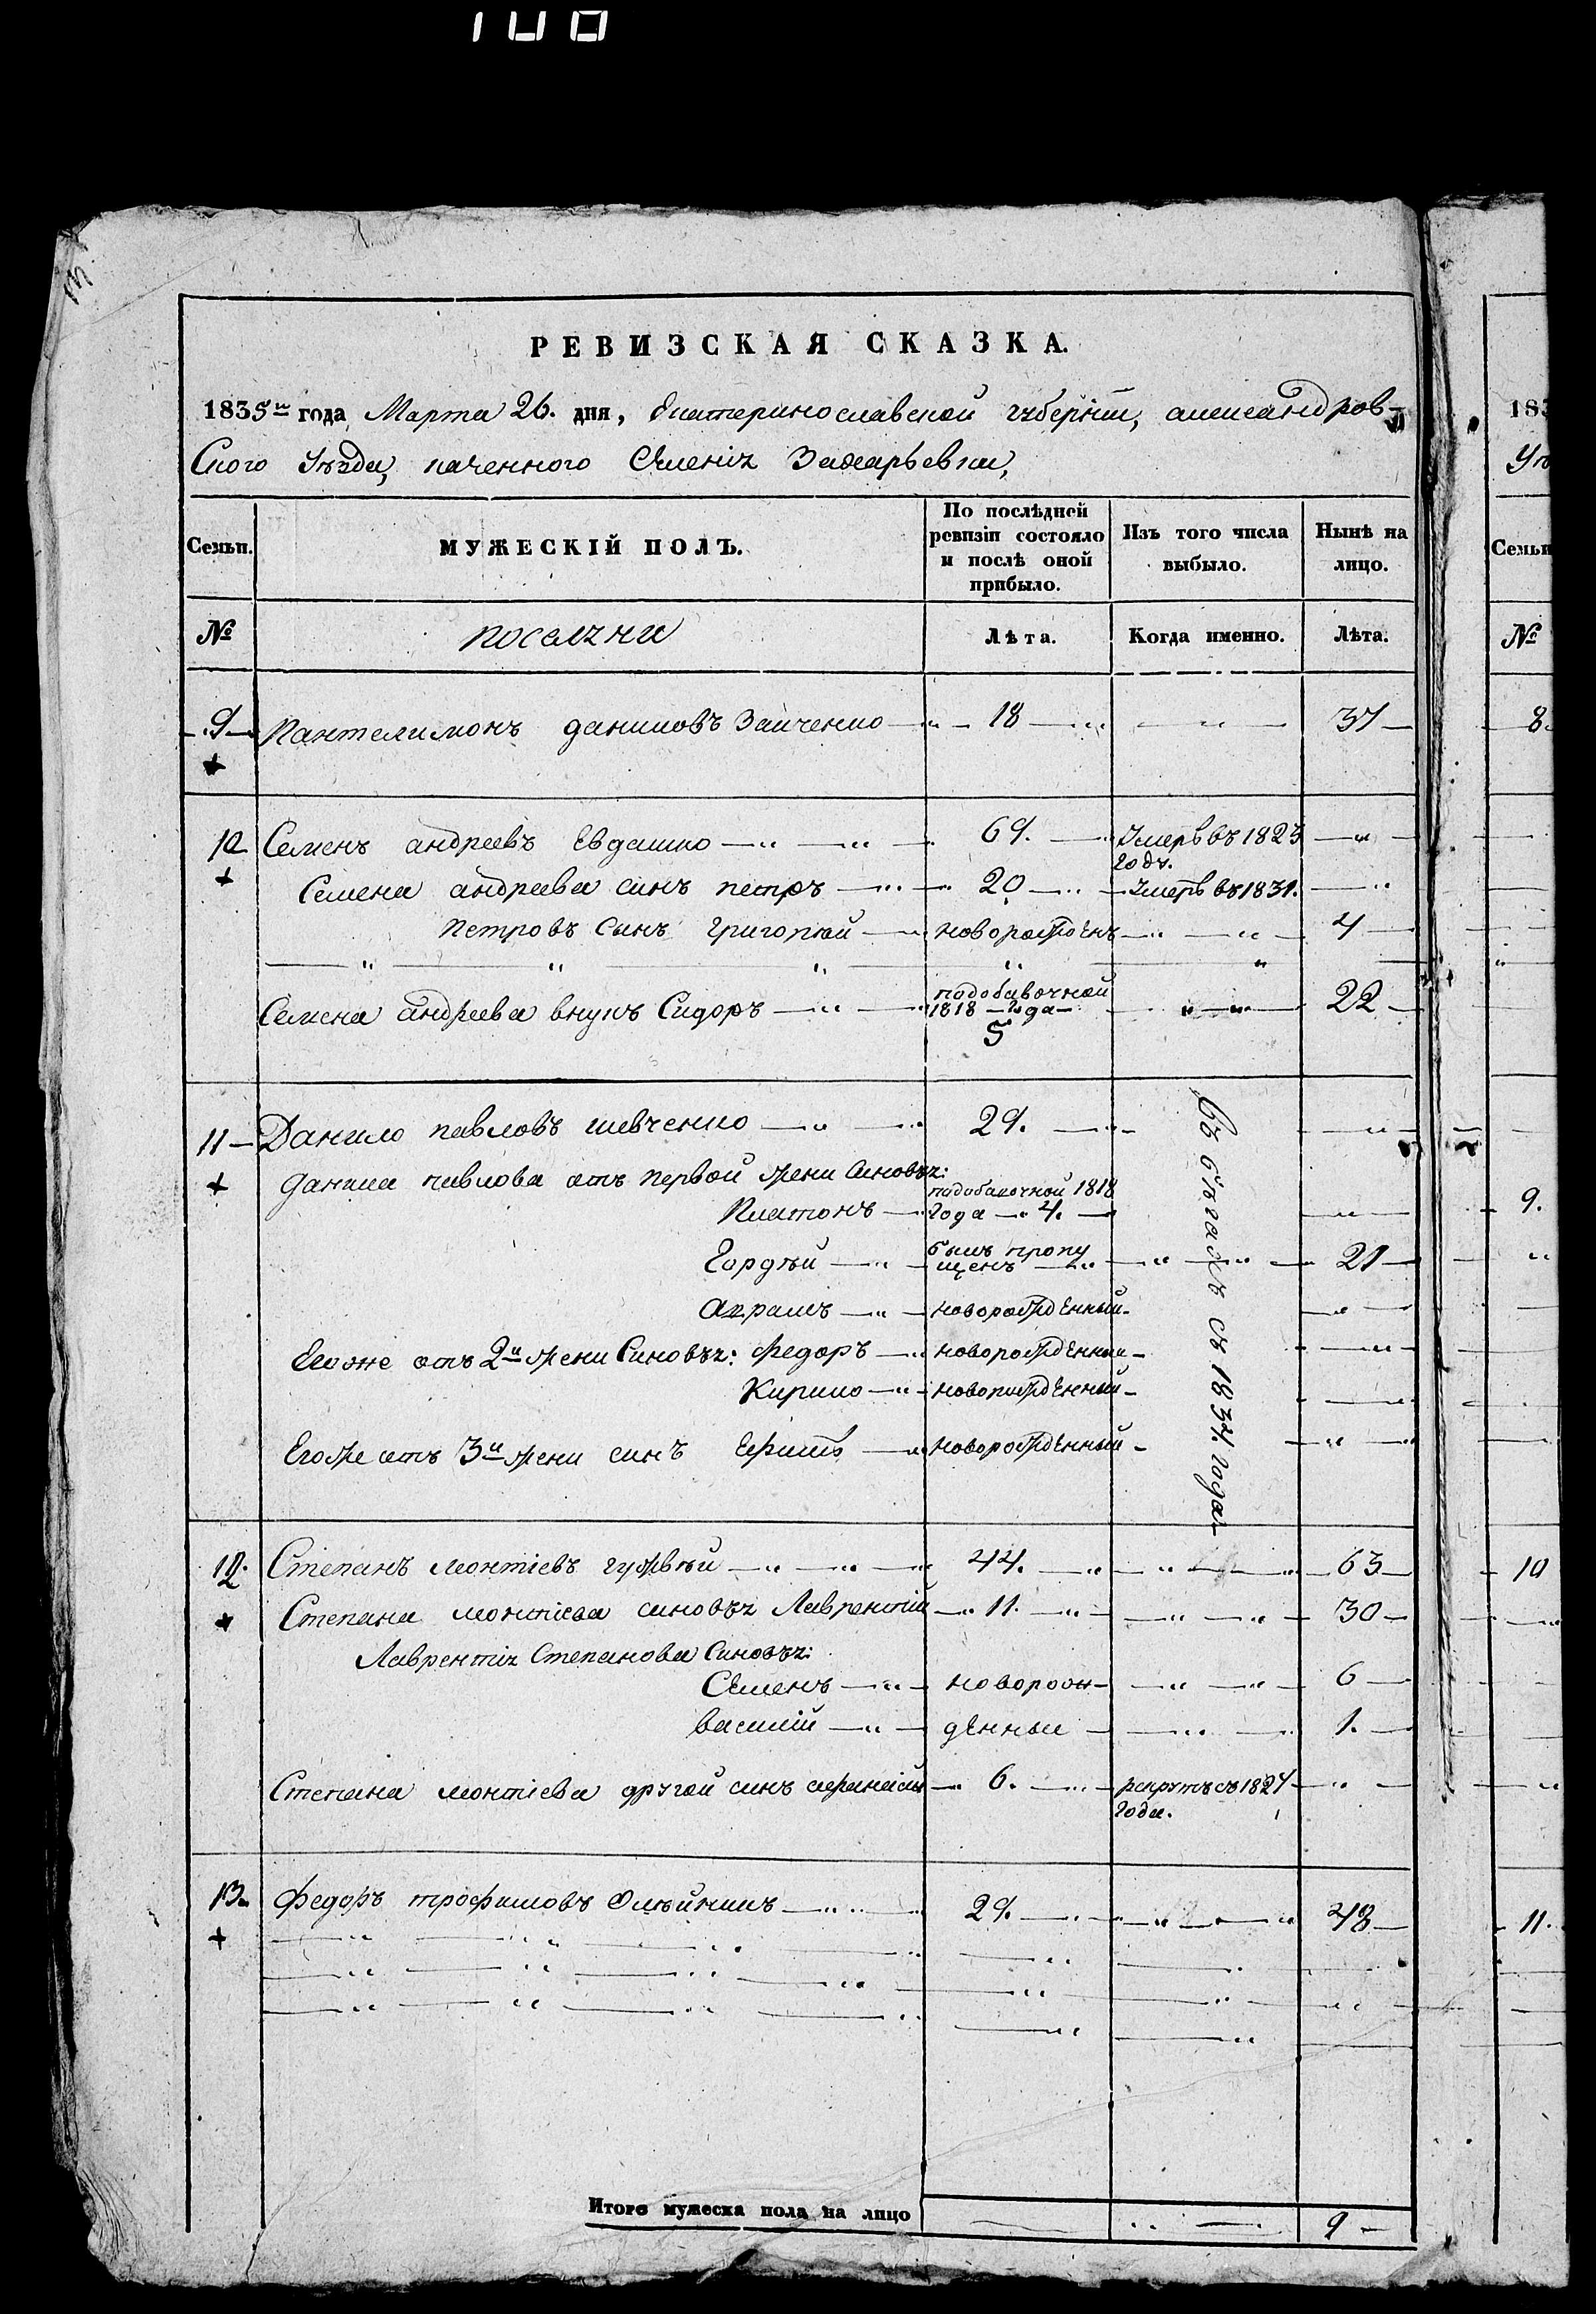 РЕВИЗСКАЯ СКАЗКА.
1835го года Марта 26. дня, Екатеринославской губерніи, александров-
Ского Уезда, казенного Селенія Захарьевки,
Семьи.
МУЖЕСКІЙ ПОЛЪ.
По послѣдней ревизіи состояло и послѣ оной прибыло.
Изъ того числа выбыло.
Нынѣ на лицо.
№
поселяни
Лѣта.
Когда именно.
Лѣта.
9 Пантелимонъ даниловъ Заиченко 18 37
10 Семенъ андреевъ Евдашко 69. Умеръ въ 1823 годѣ.
Семена андреева синъ петръ 20 Умеръ въ 1831.
Петровъ Синъ григорій новорожденъ 4
Семена андреева внукъ Сидоръ подобавочной 1818 года 5 22
11 Данило павловъ шевченко 29.
данила павлова отъ первой жени Синовья:
Платонъ подобавочной 1818 года 4.
Гордѣй былъ пропущенъ 21
новорожденный
Егоже отъ 2й жени Синовья: Федоръ новорожденный
Кирило новорожденный
Егоже отъ 3й жени синъ Ефимъ новорожденный
въ бѣгахъ съ 1834. года
12. Степанъ монтіевъ гужвѣй 44. 63
Степана монтіева синовья Лаврентій 11. 30
Лаврентія Степанова Синовья:
Семенъ новорож- 6
василій денныи 1.
Степана монтіева другой синъ афанасій 6. рекрутъ съ 1827 года.
13. Федоръ трофимовъ Олѣйникъ 29. 48
Итого мужеска пола на лицо 9
183
Уѣ
Семьи
№
8
9.
10
11.